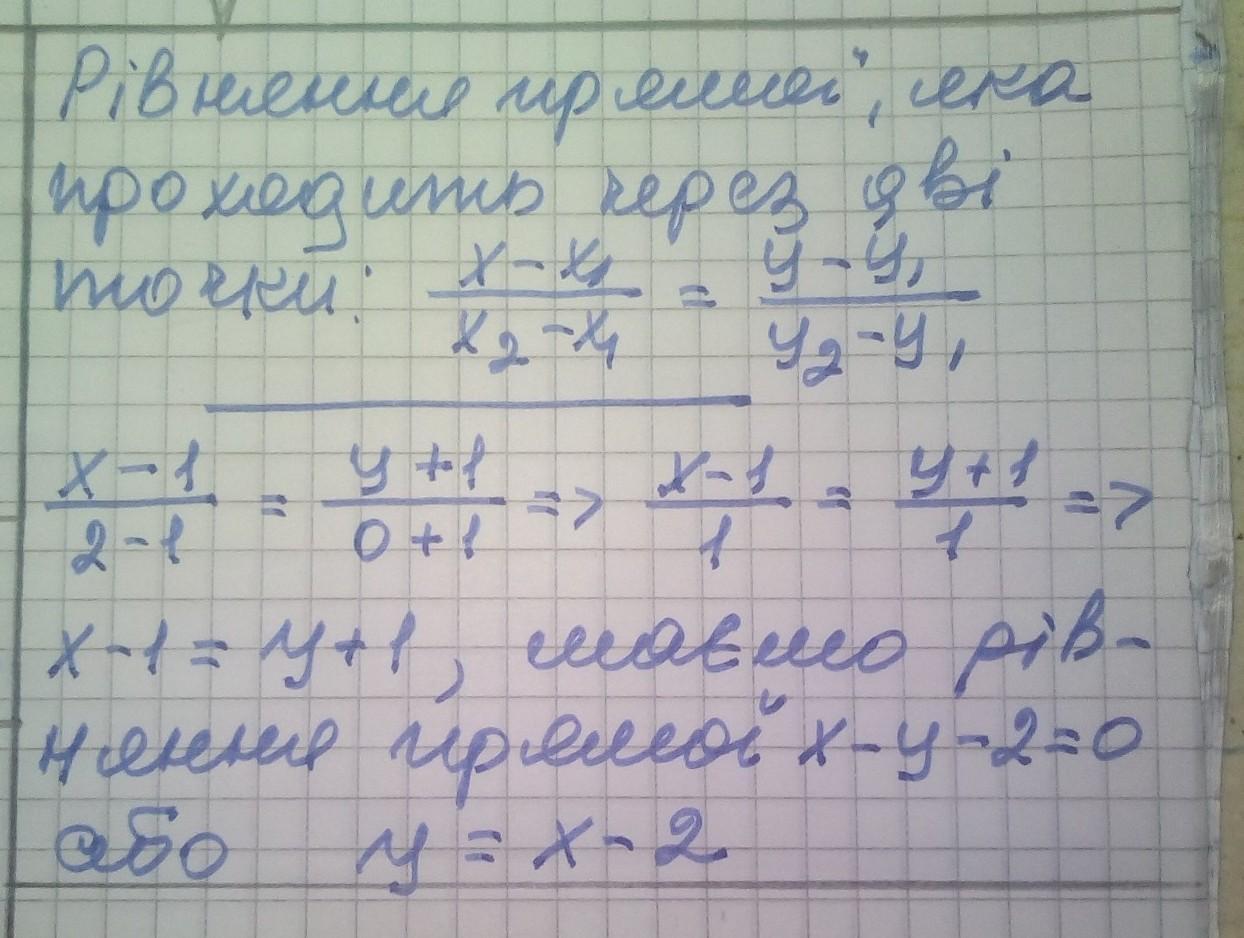 Рівняння прямої, яка
проходить через дві
точки: (x - x₁)/(x₂ - x₁) = (y - y₁)/(y₂ - y₁)
(x - 1)/(2 - 1) = (y + 1)/(0 + 1) => (x - 1)/1 = (y + 1)/1 =>
x - 1 = y + 1, маємо рів-
няння прямої x - y - 2 = 0
або y = x - 2